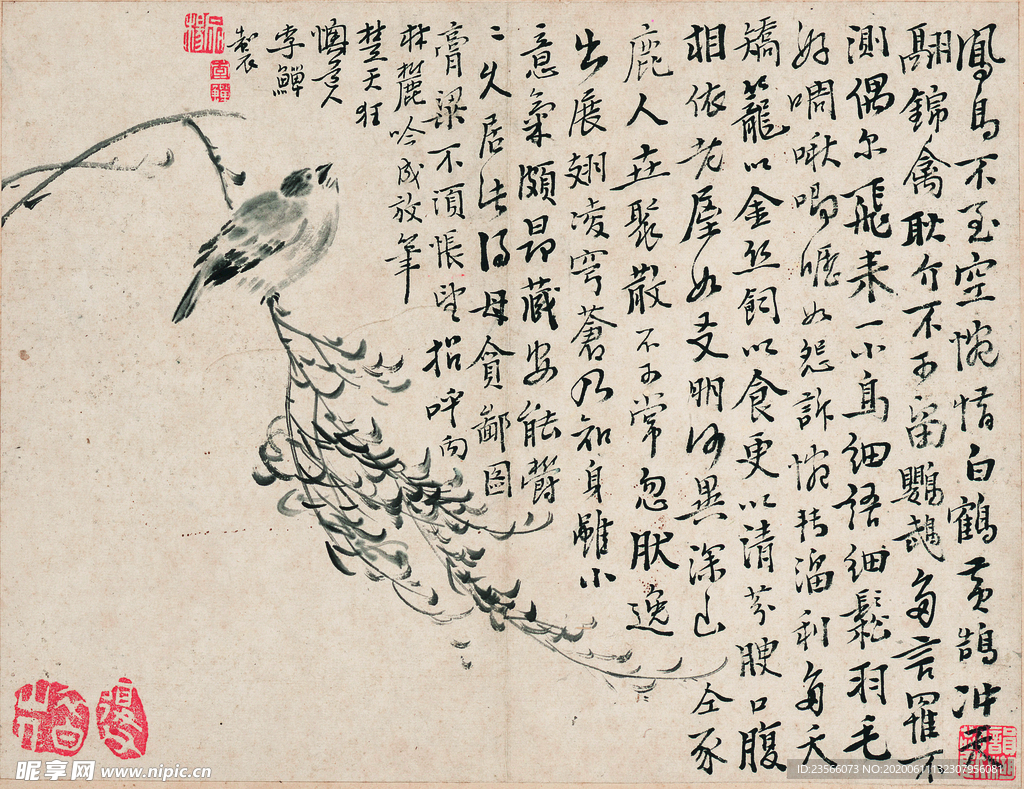 鳳鳥不至空惋惜白鶴黃鵠冲天
翮錦禽耿介不可留鸚鵡多言罹不
測偶尔飛来一小鳥細語細鬆羽毛
好啁啾唧嚦如怨訴惋轉溜利多夭
矯籠以金丝飼以食更以清芬腴口腹
相依老屋如友朋何異深山仝豕
鹿人生聚散不可常忽肰逸
出展翅凌穹蒼乃知身雖小
意氣頗昂藏安能欝
二久居此得毋貪鄙圖
膏粱不須悵望招呼向
林麓吟成放筆
楚天狂
懊道人
李鱓
製
李鱓
昵享网 www.nipic.cn
ID:23566073 NO:20200611132307956081